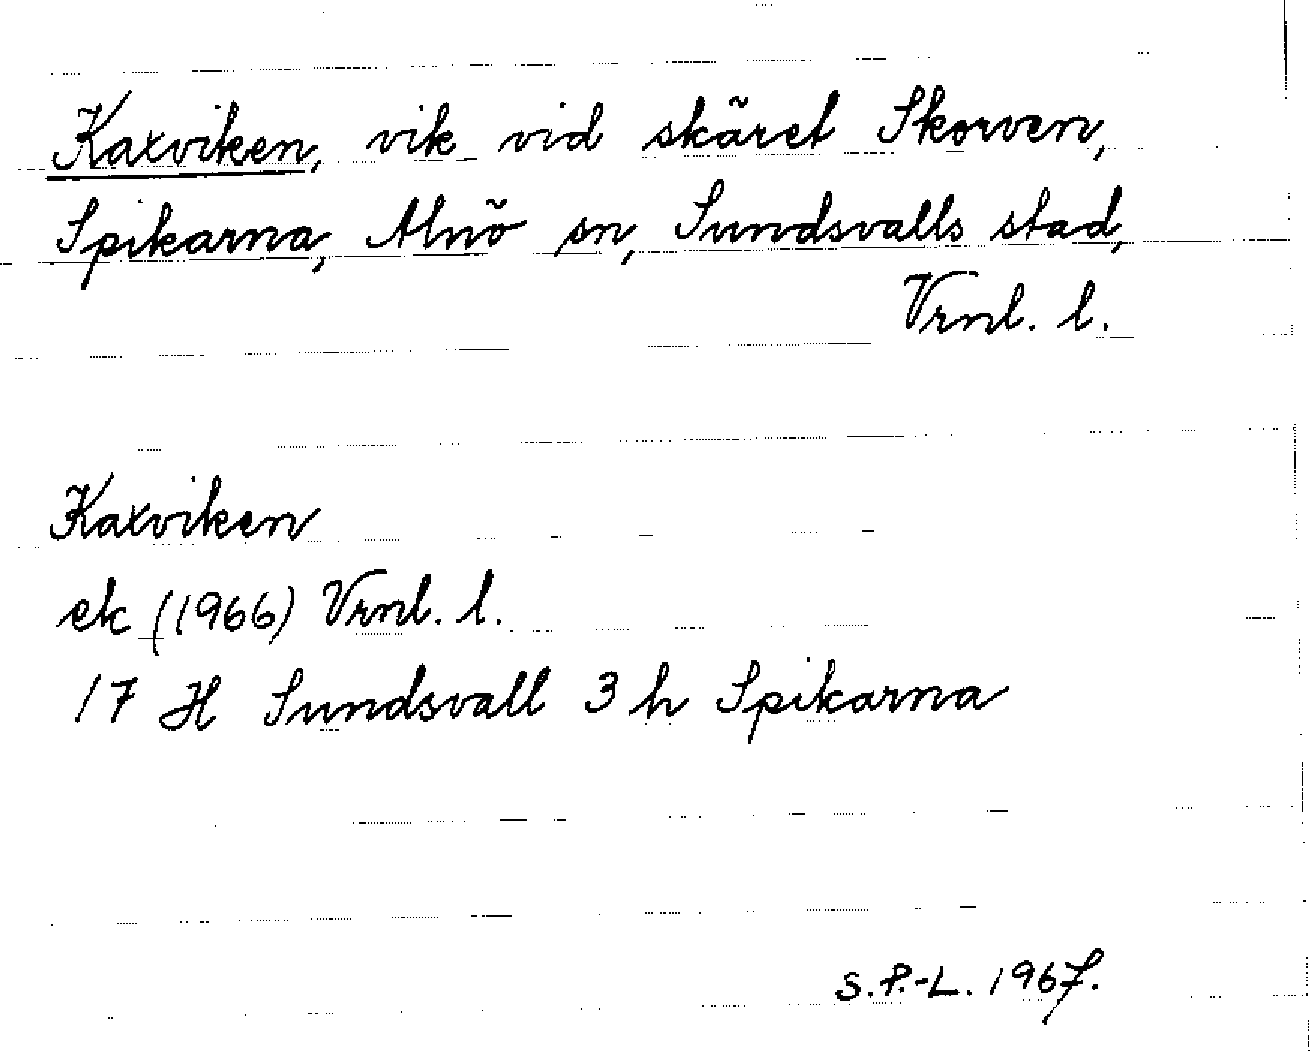 Kaxviken, vik vid skäret Skorven,
Spikarna, Alnö sn, Sundsvalls stad,
Vrnl. l.
Kaxviken
ek (1966) Vrnl. l.
17 H Sundsvall 3 h Spikarna
S.P.-L. 1967.